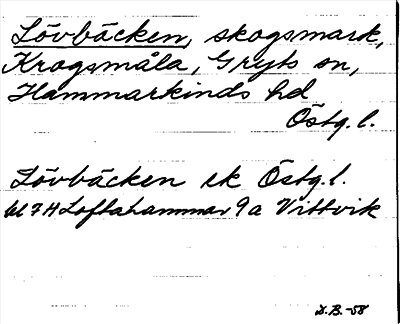 Lövbäcken, skogsmark,
Krogsmåla, Gryts sn,
Hammarkinds hd
Östg. l.
Lövbäcken ek Östg. l.
bl 7H Loftahammar 9a Vittvik
D.B. -58